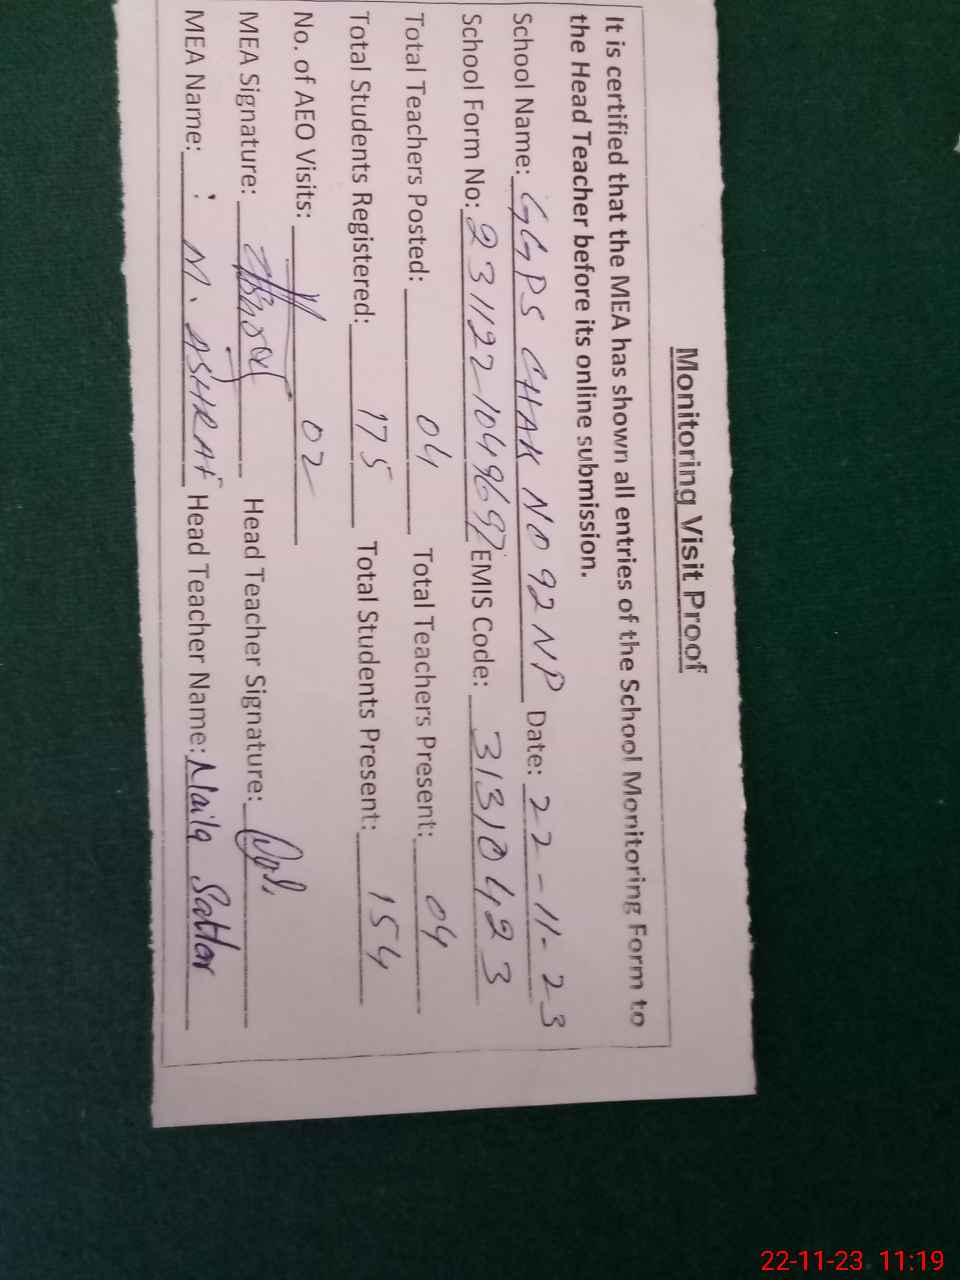 Monitoring Visit Proof
It is certified that the MEA has shown all entries of the School Monitoring Form to
the Head Teacher before its online submission.
School Name: GGPS CHAK NO 92 NP Date: 22-11-23
School Form No: 231122-1049697 EMIS Code: 31310423
Total Teachers Posted: 04 Total Teachers Present: 04
Total Students Registered: 175 Total Students Present: 154
No. of AEO Visits: 02
MEA Signature: Head Teacher Signature:
MEA Name: M. ASHRAF Head Teacher Name: Naila Sattar
22-11-23 11:19